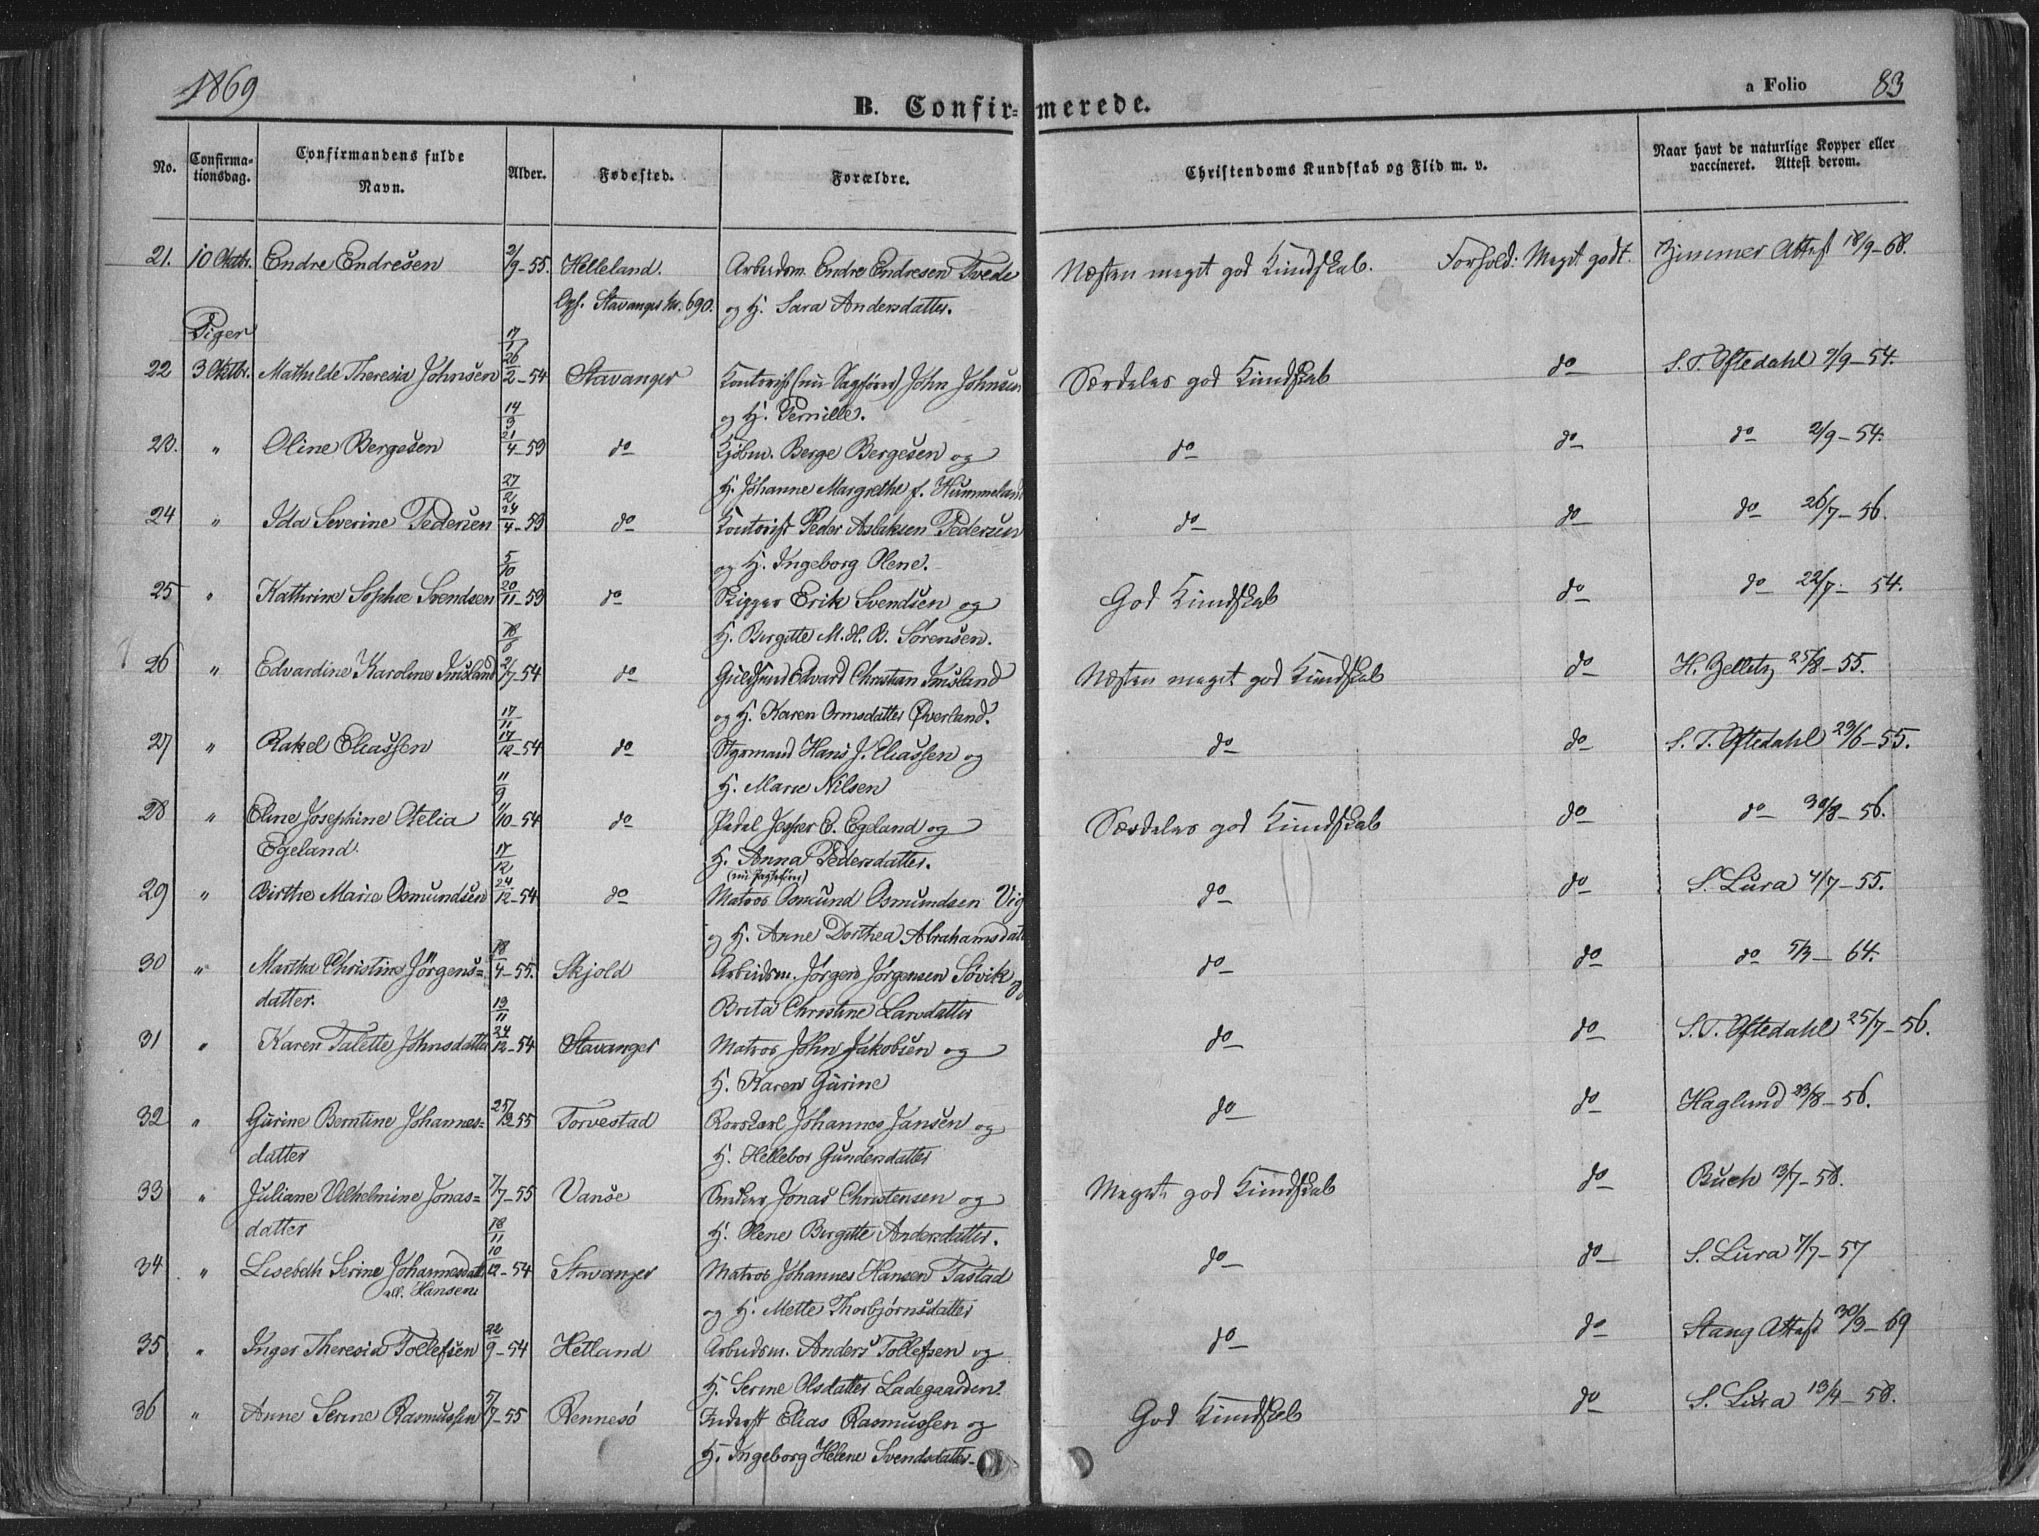 1869
a Folio 83
B. Confirmerede.
No. Confirmationsdag. Confirmandens fulde Navn. Alder. Fødested. Forældre. Christendoms Kundskab og Flid m. v. Naar havt de naturlige Kopper eller vaccineret. Attest derom.
21. 10 Oktbr. Endre Endresen 2/9-55. Helleland. Arbeidsm. Endre Endresen Tvede Næsten meget god Kundskab. Forhold: Meget godt. Zimmer Attest 18/9-68.
Stavanger Nr. 690. og H. Sara Andersdatter.
Piger
17/1
22 3 Oktbr. Mathilde Theresia Johnsen 26/2-54 Stavanger Kontorist (nu Sagfører) John Johnsen Særdeles god Kundskab do S. T. Oftedahl 2/9-54.
14/3 og H. Pernille.
23. " Oline Bergesen 21/4-53 do Kjøbm. Berge Bergesen og do do do 2/9-54.
27/2 H. Johanne Margrethe f. Hummeland
24 " Ida Severine Pedersen 24/4-53 do Kontorist Peder Aslaksen Pedersen do do do 26/7-56.
5/10 og H. Ingeborg Olene.
25 " Kathrine Sophie Svendsen 20/11-53 do Skipper Erik Svendsen og God Kundskab do do 22/7-54.
18/6 H. Birgitte M. H. B. Sørensen.
26 " Edvardine Karoline Imsland 2/7-54 do Guldsmed Edvard Christian Imsland Næsten meget god Kundskab do H. Zelletz 25/8-55.
17/11 og H. Karen Ormsdatter Øverland.
27 " Rakel Eliassen 17/12-54 do Styrmand Hans J. Eliassen og do do S. T. Oftedahl 29/6-55.
11/9 H. Marie Nilsen
28 " Eline Josephine Otelia 11/10-54 do Pedel Jesper E. Egeland og Særdeles god Kundskab do do 30/8-56.
Egeland. 17/12 H. Anna Pedersdatter.
29 " Birthe Marie Osmundsen 24/12-54 do Matros Osmund Osmundsen Vig do do S. Lura 4/7-55.
og H. Anne Dorthea Abrahamsdatt
30 " Martha Christine Jörgens= 18/4-55. Skjold Arbeidsm. Jörgen Jörgensen Søvik og do do do 5/3-64.
datter. 13/11 Brita Christine Larsdatter
31 " Karen Talette Johnsdatter 24/12-54 Stavanger Matros John Jakobsen og do do S. T. Oftedahl 25/7-56.
H. Karen Gurine
32 " Gurine Berntine Johannes= 25/3-55 Torvestad Rorskarl Johannes Jansen og do do Haglund 23/8-56.
datter H. Hellebor Gundersdatter
33 " Juliane Vilhelmine Jonas= 7/7-55 Vanse Snedker Jonas Christensen og Meget god Kundskab do Buch 13/7-58.
datter 18/11 H. Olene Birgitte Andersdatter.
34 " Lisebeth Serine Johannesdatt 10/12-54 Stavanger Matros Johannes Hansen Tastad do do S. Lura 7/7-57
all. Hansen og H. Mette Thorbjørnsdatter
35 " Inger Theresia Tollefsen 22/9-54 Hetland Arbeidsm. Anders Tollefsen og do do Stang Attest 30/9-69
H. Serine Olsdatter Ladegaarden
36 " Anne Serine Rasmussen 5/7-55 Rennesö Inderst Elias Rasmussen og God Kundskab do S. Lura 13/4-58.
H. Ingeborg Helene Svendsdatter